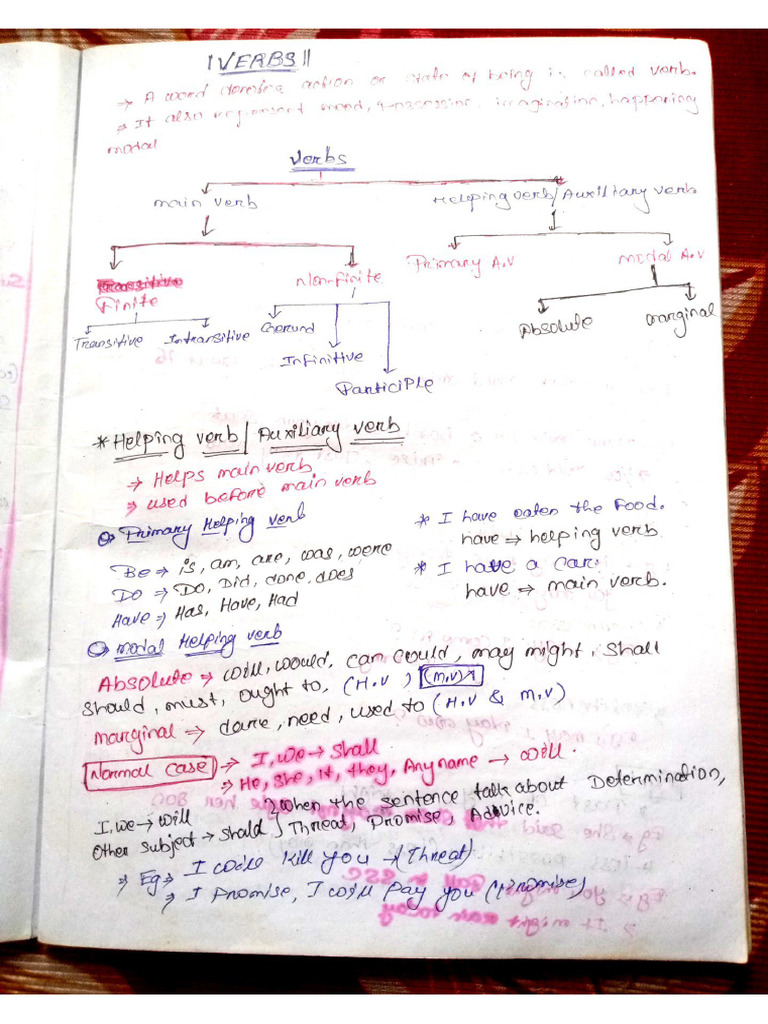 VERBS
→ A word denoting action or state of being is called verb.
→ It also represent mood, imagination, happening
modal
Verbs
main verb Helping verb/Auxiliary verb
Finite Non-finite Primary A.V Modal A.V
Transitive Intransitive Gerund Absolute marginal
Infinitive
Participle
* Helping verb/Auxiliary verb
→ Helps main verb
→ used before main verb
Primary Helping verb * I have eaten the Food.
have → helping verb
Be → is, am, are, was, were * I have a car.
Do → Do, Did, done, does have → main verb.
Have → Has, Have, Had
Modal Helping verb
Absolute → will, would, can could, may might, shall
should, must, ought to, (H.V) (M.V)X
marginal → dare, need, used to (H.V & M.V)
Normal case → I, we → Shall
→ He, She, it, they, Any name → will.
I, we → will } When the sentence talk about Determination,
Other subject → shall } Threat, Promise, Advice.
→ Eg → I will kill you → (Threat)
→ I Promise, I will pay you (Promise)